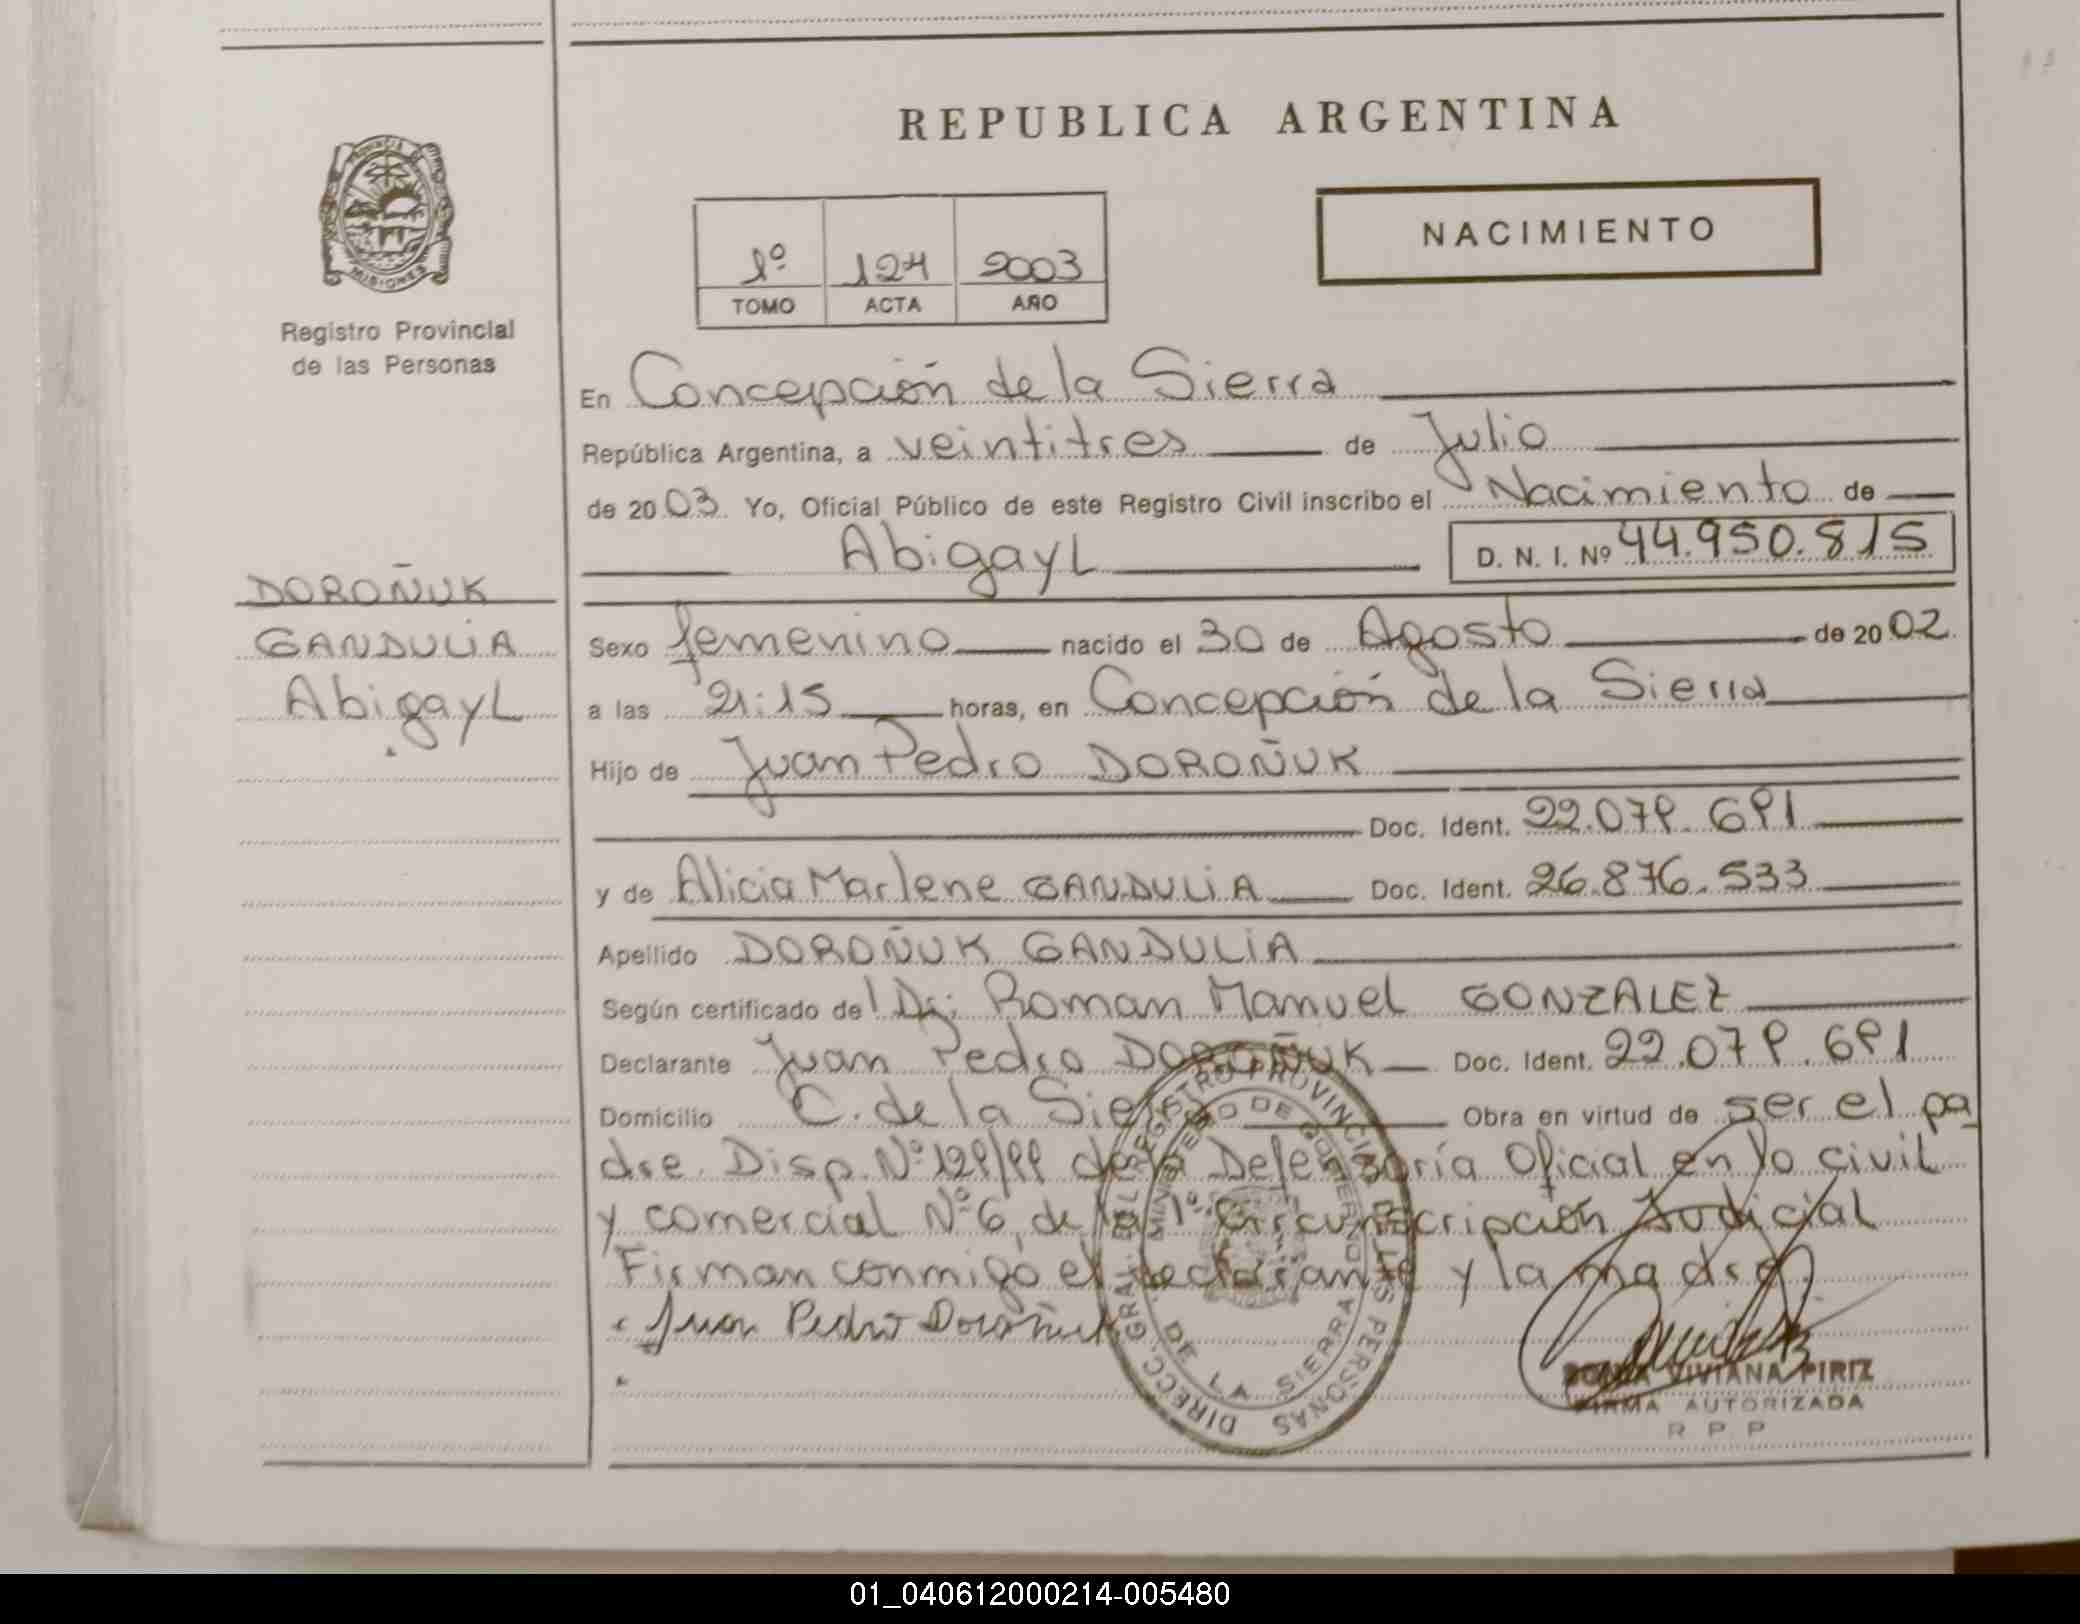 REPUBLICA ARGENTINA
PROVINCIA DE MISIONES
Registro Provincial
de las Personas
1º 124 2003
TOMO ACTA AÑO
NACIMIENTO
En Concepción de la Sierra
República Argentina, a veintitres de Julio
de 2003. Yo, Oficial Público de este Registro Civil inscribo el Nacimiento de
Abigayl D. N. I. Nº 44.950.815
DOROÑUK
GANDULIA
Abigayl
Sexo femenino nacido el 30 de Agosto de 2002.
a las 21:15 horas, en Concepción de la Sierra
Hijo de Juan Pedro DOROÑUK
Doc. Ident. 22.079.691
y de Alicia Marlene GANDULIA Doc. Ident. 26.876.533
Apellido DOROÑUK GANDULIA
Según certificado del Dr: Roman Manuel GONZALEZ
Declarante Juan Pedro DOROÑUK Doc. Ident. 22.079.691
Domicilio C. de la Sierra Obra en virtud de ser el pa
dre. Disp. Nº 129/99 de la Defensoría Oficial en lo civil
y comercial Nº 6, de la 1º Circunscripción Judicial
Firman conmigo el declarante y la madre.
Juan Pedro Doroñuk
DIRECC. GRAL. DEL REGISTRO PROVINCIAL DE LAS PERSONAS
MINISTERIO DE GOBIERNO
DE LA SIERRA
SONIA VIVIANA PIRIZ
FIRMA AUTORIZADA
R P P
01_040612000214-005480